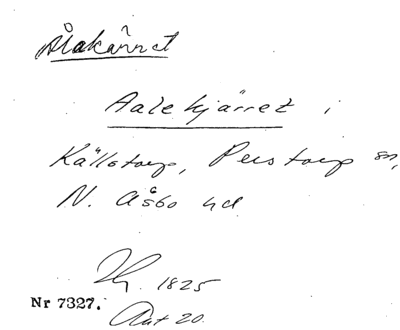 Ålakärret
Aalekjärret i
Källstorp, Perstorp sn,
N. Åsbo hd
Lh. 1825
Nr 7327.
Akt 20.